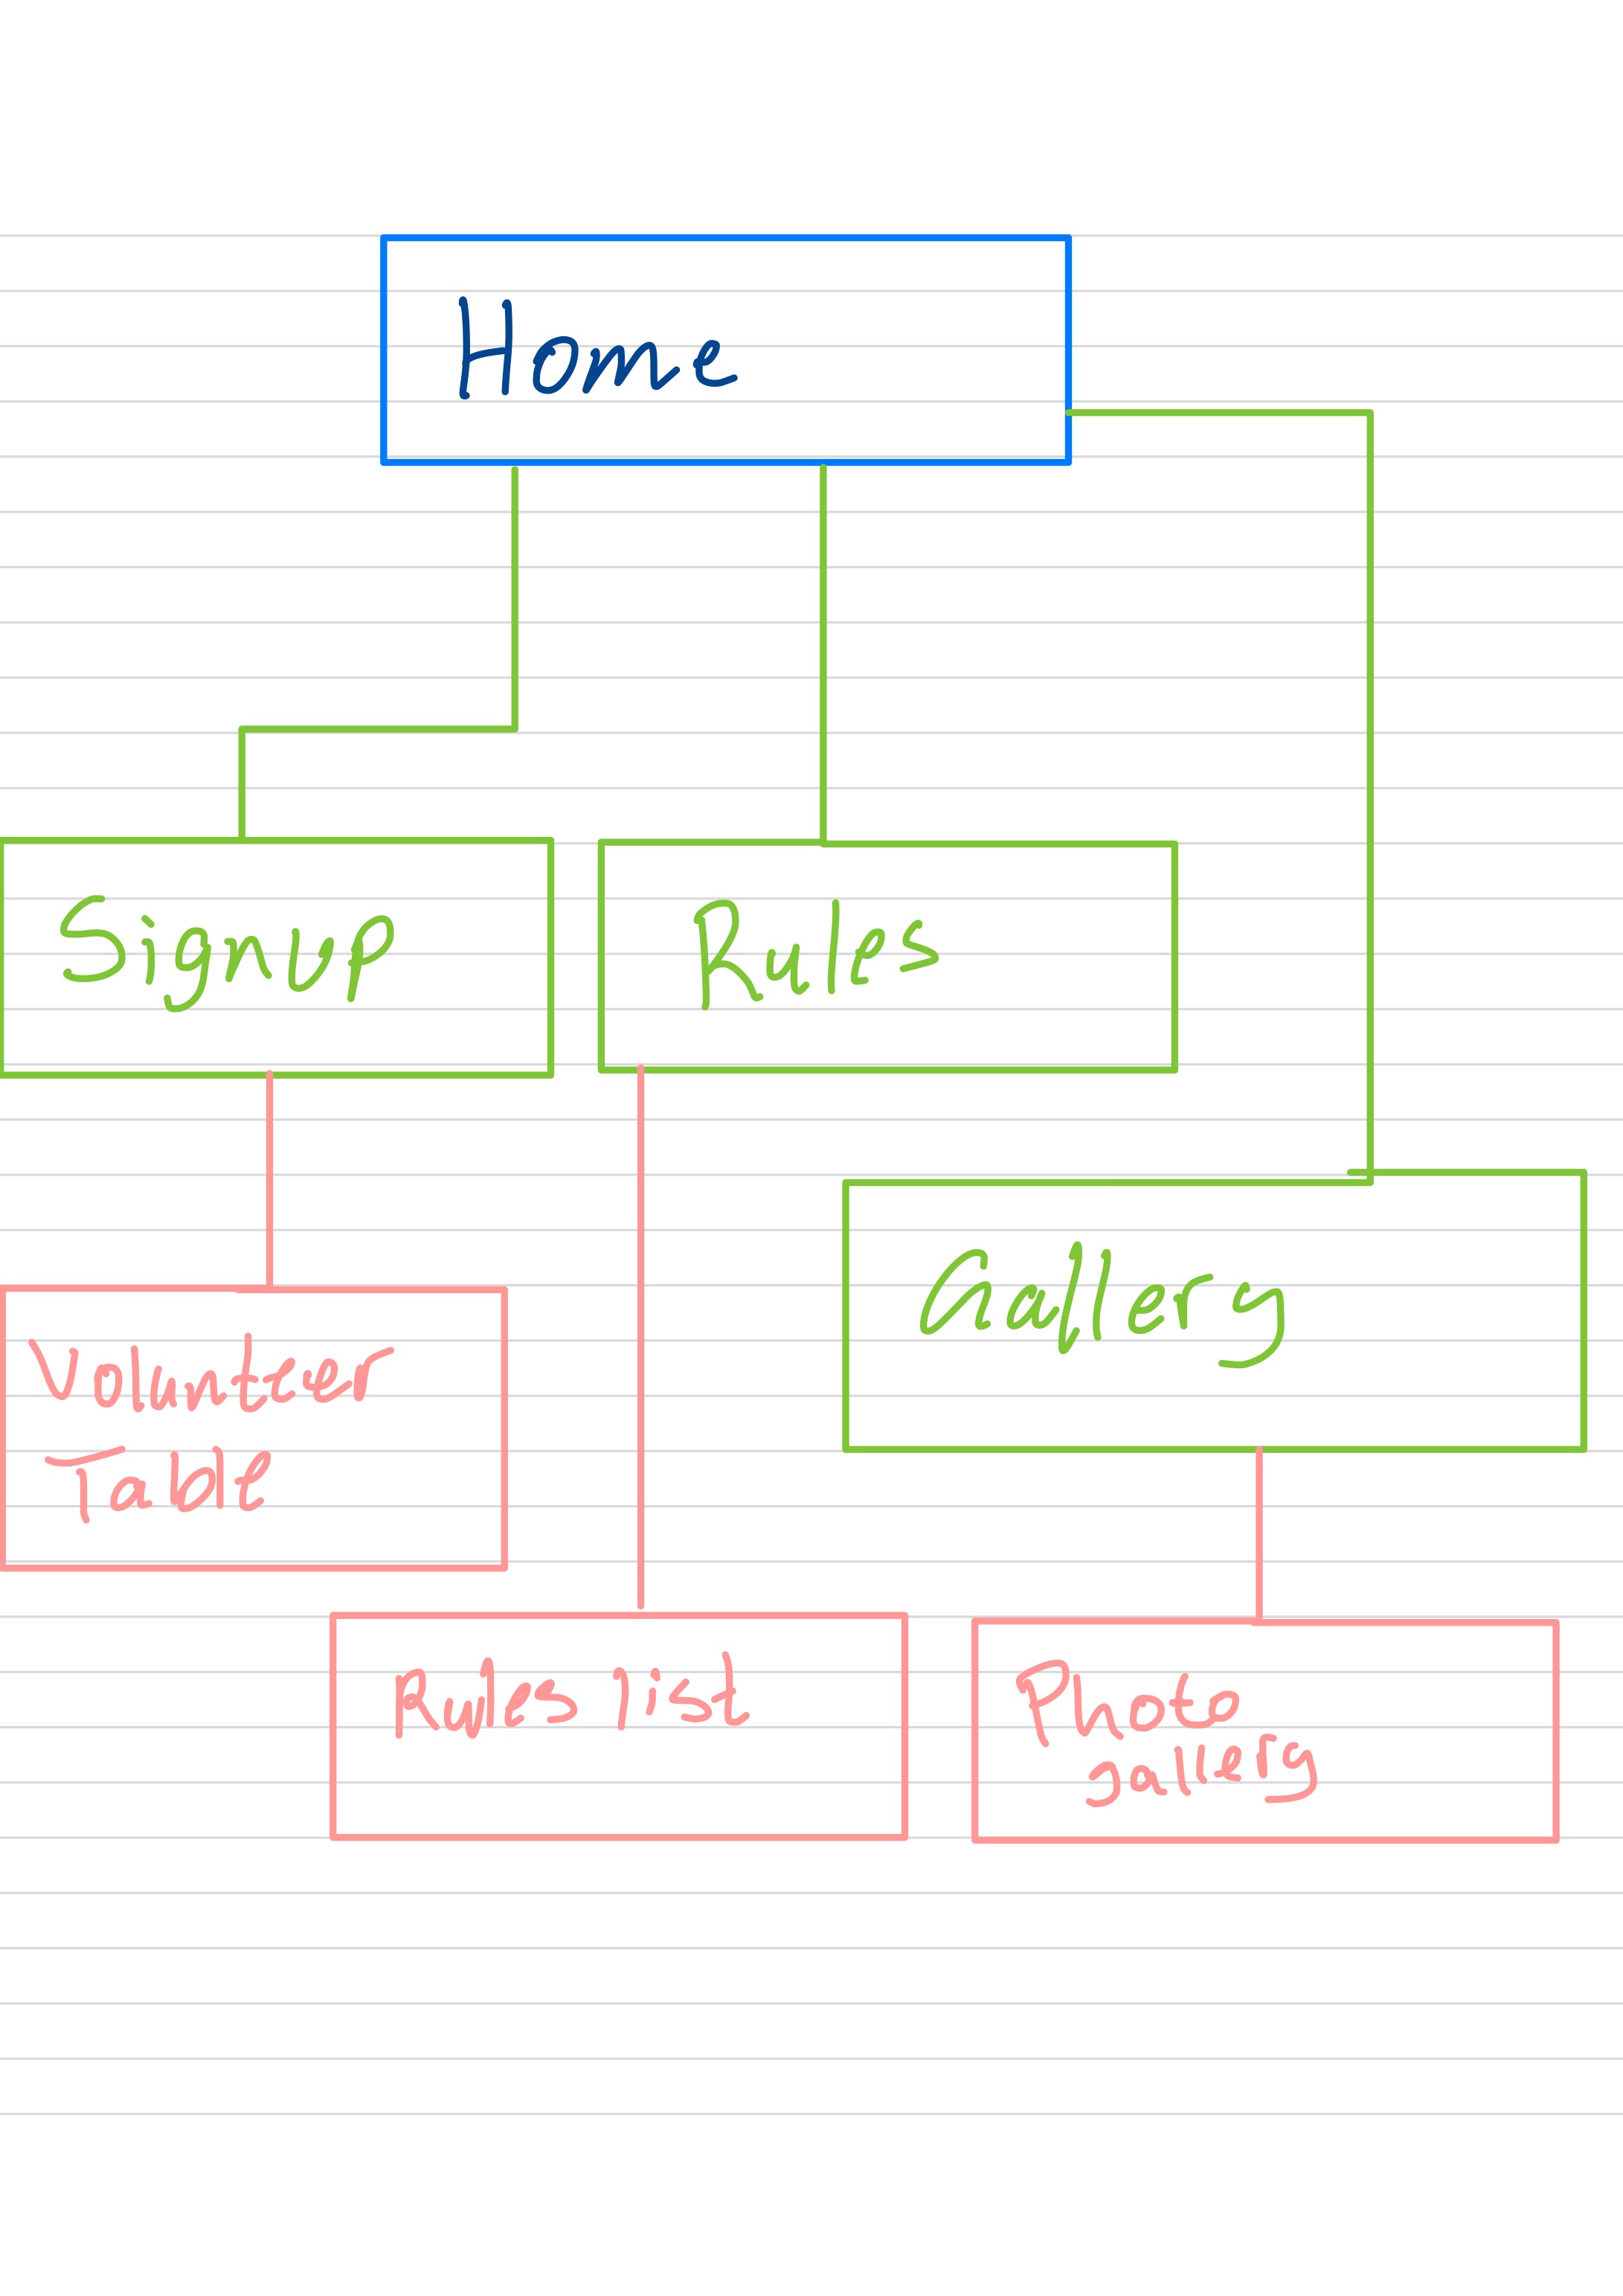 Home
Signup
Rules
Gallery
Volunteer
Table
Rules list
Photo
gallery